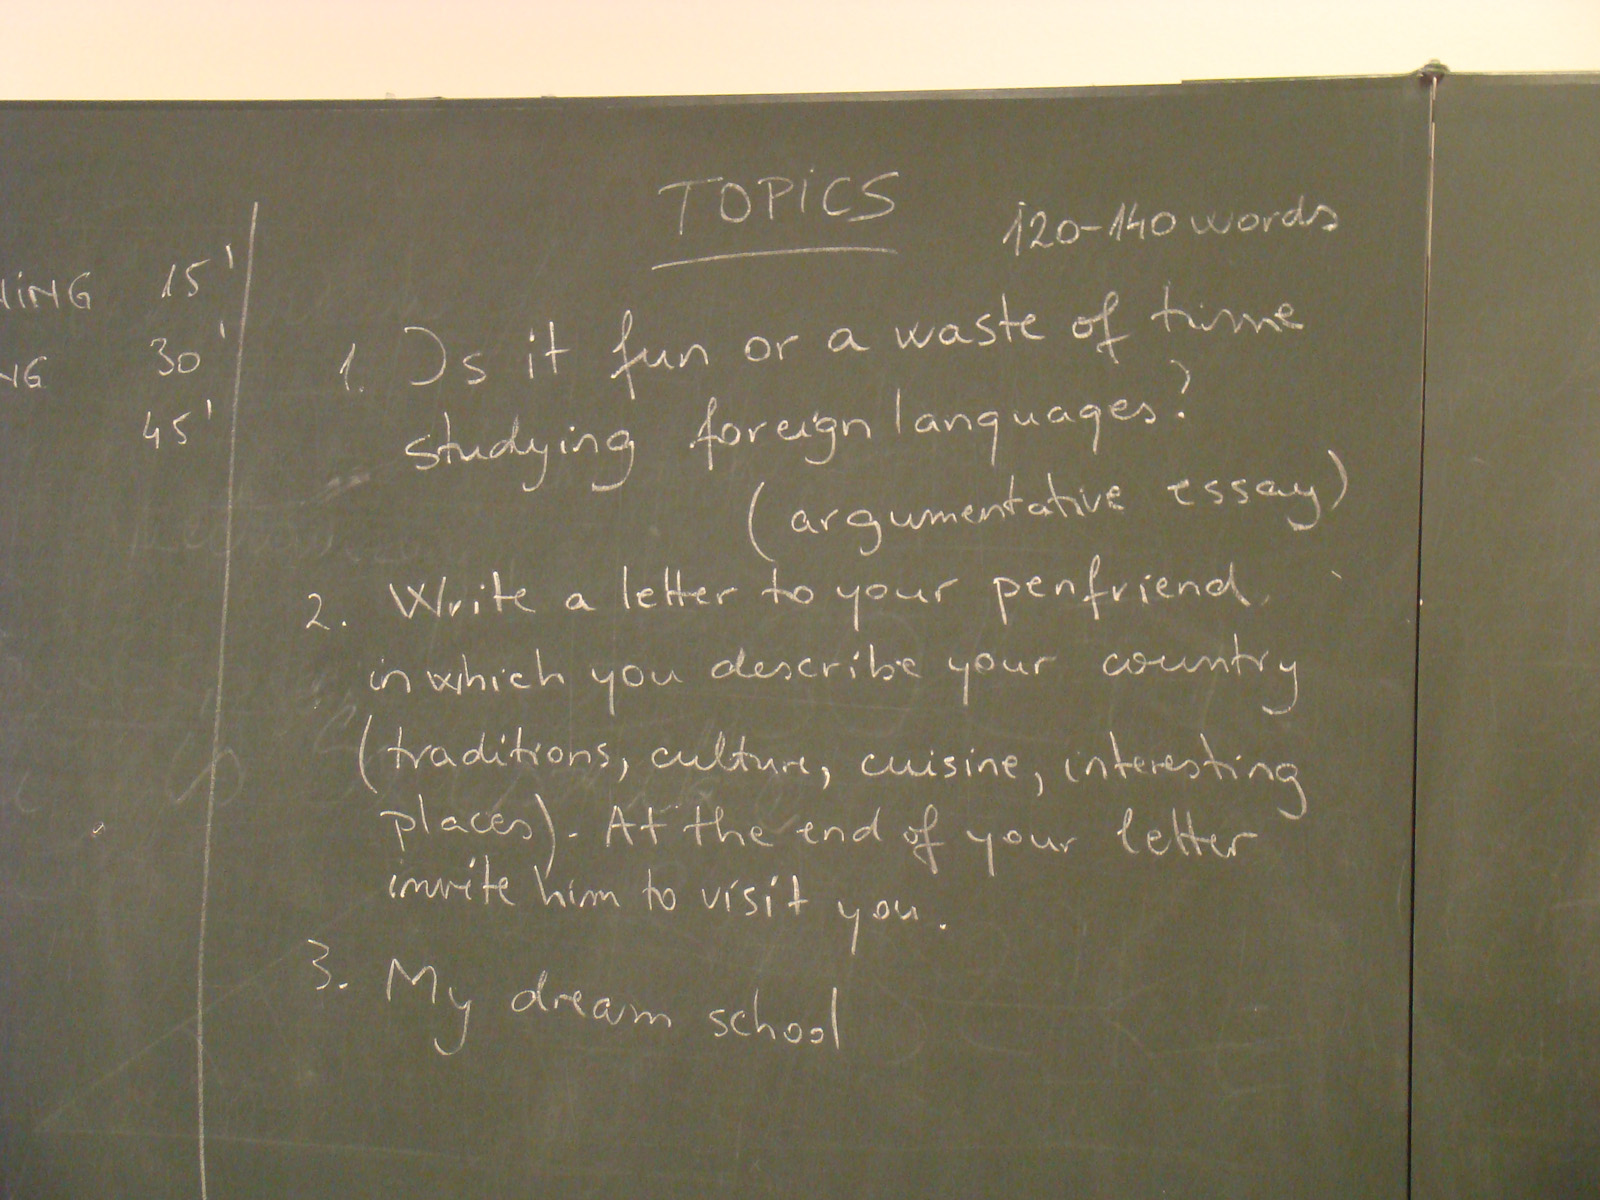 15'
30'
45'
TOPICS
120-140 words
1. Is it fun or a waste of time
studying foreign languages?
(argumentative essay)
2. Write a letter to your penfriend
in which you describe your country
(traditions, culture, cuisine, interesting
places). At the end of your letter
invite him to visit you.
3. My dream school